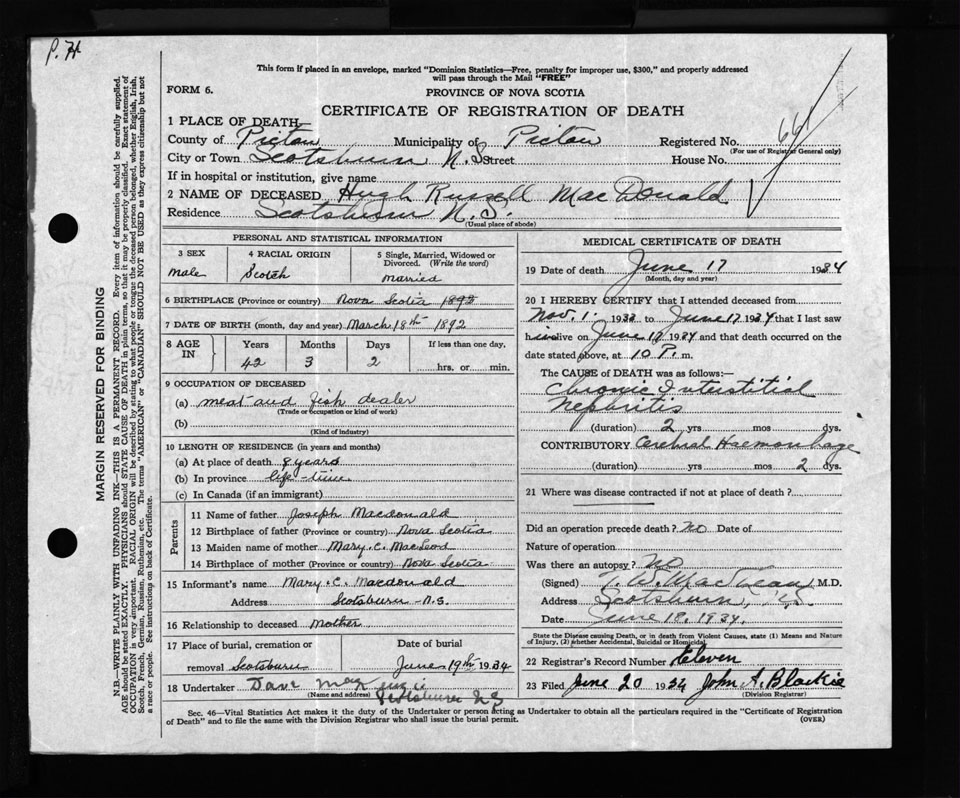 P. H
This form if placed in an envelope, marked "Dominion Statistics—Free, penalty for improper use, $300," and properly addressed
will pass through the Mail "FREE"
FORM 6.
PROVINCE OF NOVA SCOTIA
CERTIFICATE OF REGISTRATION OF DEATH
1 PLACE OF DEATH—
County of Pictou Municipality of Pictou Registered No. 661
(For use of Registrar General only)
City or Town Scotsburn N.S. Street House No.
If in hospital or institution, give name
2 NAME OF DECEASED Hugh Russell MacDonald
Residence Scotsburn N.S.
(Usual place of abode)
PERSONAL AND STATISTICAL INFORMATION
3 SEX 4 RACIAL ORIGIN 5 Single, Married, Widowed or Divorced. (Write the word)
male Scotch married
6 BIRTHPLACE (Province or country) Nova Scotia 1892
7 DATE OF BIRTH (month, day and year) March 18th 1892
8 AGE IN Years Months Days If less than one day,
42 3 2 hrs. or min.
9 OCCUPATION OF DECEASED
(a) meat and fish dealer
(Trade or occupation or kind of work)
(b)
(Kind of industry)
10 LENGTH OF RESIDENCE (in years and months)
(a) At place of death 8 years
(b) In province life-time
(c) In Canada (if an immigrant)
Parents
11 Name of father Joseph Macdonald
12 Birthplace of father (Province or country) Nova Scotia
13 Maiden name of mother Mary. C. MacLeod
14 Birthplace of mother (Province or country) Nova Scotia
15 Informant's name Mary. C. Macdonald
Address Scotsburn - N.S.
16 Relationship to deceased Mother
17 Place of burial, cremation or Date of burial
removal Scotsburn June 19th 1934
18 Undertaker Dave MacKenzie
(Name and address) Scotsburn N S
MEDICAL CERTIFICATE OF DEATH
19 Date of death June 17 1934
(Month, day and year)
20 I HEREBY CERTIFY that I attended deceased from
Nov. 1. 1933 to June 17 1934 that I last saw
him alive on June 17 1934 and that death occurred on the
date stated above, at 10 P. m.
The CAUSE of DEATH was as follows:—
Chronic Interstitial
Nephritis
(duration) 2 yrs mos dys.
CONTRIBUTORY Cerebral Haemorrhage
(duration) yrs mos 2 dys.
21 Where was disease contracted if not at place of death ?
Did an operation precede death ? No Date of
Nature of operation
Was there an autopsy ? No
(Signed) T. W. MacLean M.D.
Address Scotsburn, N.S.
Date June 18. 1934.
State the Disease causing Death, or in death from Violent Causes, state (1) Means and Nature
of Injury, (2) whether Accidental, Suicidal or Homicidal.
22 Registrar's Record Number Eleven
23 Filed June 20 1934 John A. Blaikie
(Division Registrar)
Sec. 46—Vital Statistics Act makes it the duty of the Undertaker or person acting as Undertaker to obtain all the particulars required in the "Certificate of Registration
of Death" and to file the same with the Division Registrar who shall issue the burial permit.
(OVER)
MARGIN RESERVED FOR BINDING
N.B.—WRITE PLAINLY WITH UNFADING INK—THIS IS A PERMANENT RECORD. Every item of information should be carefully supplied.
AGE should be stated EXACTLY. PHYSICIANS should STATE CAUSE OF DEATH in plain terms, so that it may be properly classified. Exact statement of
OCCUPATION is very important. RACIAL ORIGIN will be described by stating to what people or tongue the deceased person belonged, whether English, Irish,
Scotch, French, German, Russian, Ruthenian, etc. The terms "AMERICAN" or "CANADIAN" SHOULD NOT BE USED as they express citizenship but not
a race or people. See instructions on back of Certificate.